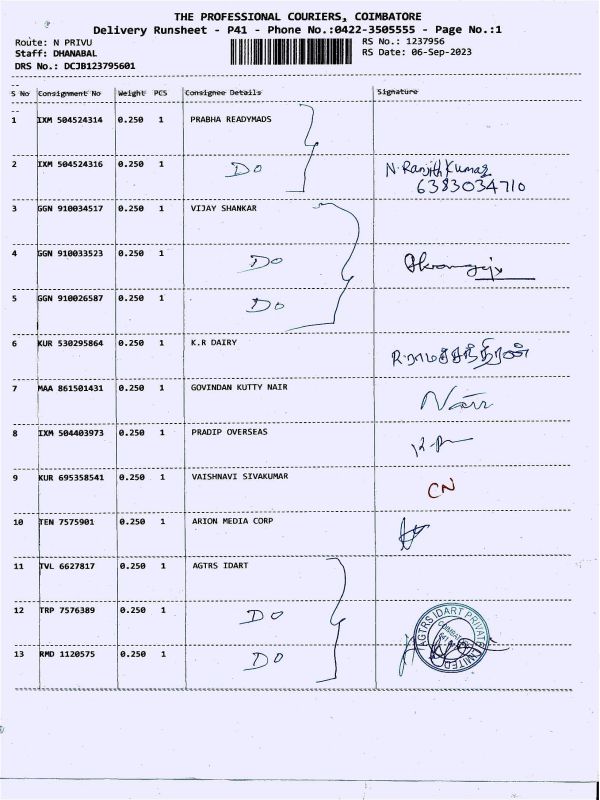 THE PROFESSIONAL COURIERS, COIMBATORE
Delivery Runsheet - P41 - Phone No.:0422-3505555 - Page No.:1
Route: N PRIVU RS No.: 1237956
Staff: DHANABAL RS Date: 06-Sep-2023
DRS No.: DCJB123795601
S No Consignment No Weight PCS Consignee Details Signature
1 IXM 504524314 0.250 1 PRABHA READYMADS
2 IXM 504524316 0.250 1 DO N. Ranjith Kumar
6383034710
3 GGN 910034517 0.250 1 VIJAY SHANKAR
4 GGN 910033523 0.250 1 DO
5 GGN 910026587 0.250 1 DO
6 KUR 530295864 0.250 1 K.R DAIRY R. ராமச்சந்திரன்
7 MAA 861501431 0.250 1 GOVINDAN KUTTY NAIR Nair
8 IXM 504403973 0.250 1 PRADIP OVERSEAS
9 KUR 695358541 0.250 1 VAISHNAVI SIVAKUMAR CN
10 TEN 7575901 0.250 1 ARION MEDIA CORP
11 TVL 6627817 0.250 1 AGTRS IDART
12 TRP 7576389 0.250 1 DO
13 RMD 1120575 0.250 1 DO
AGTRS IDART PRIVATE LIMITED